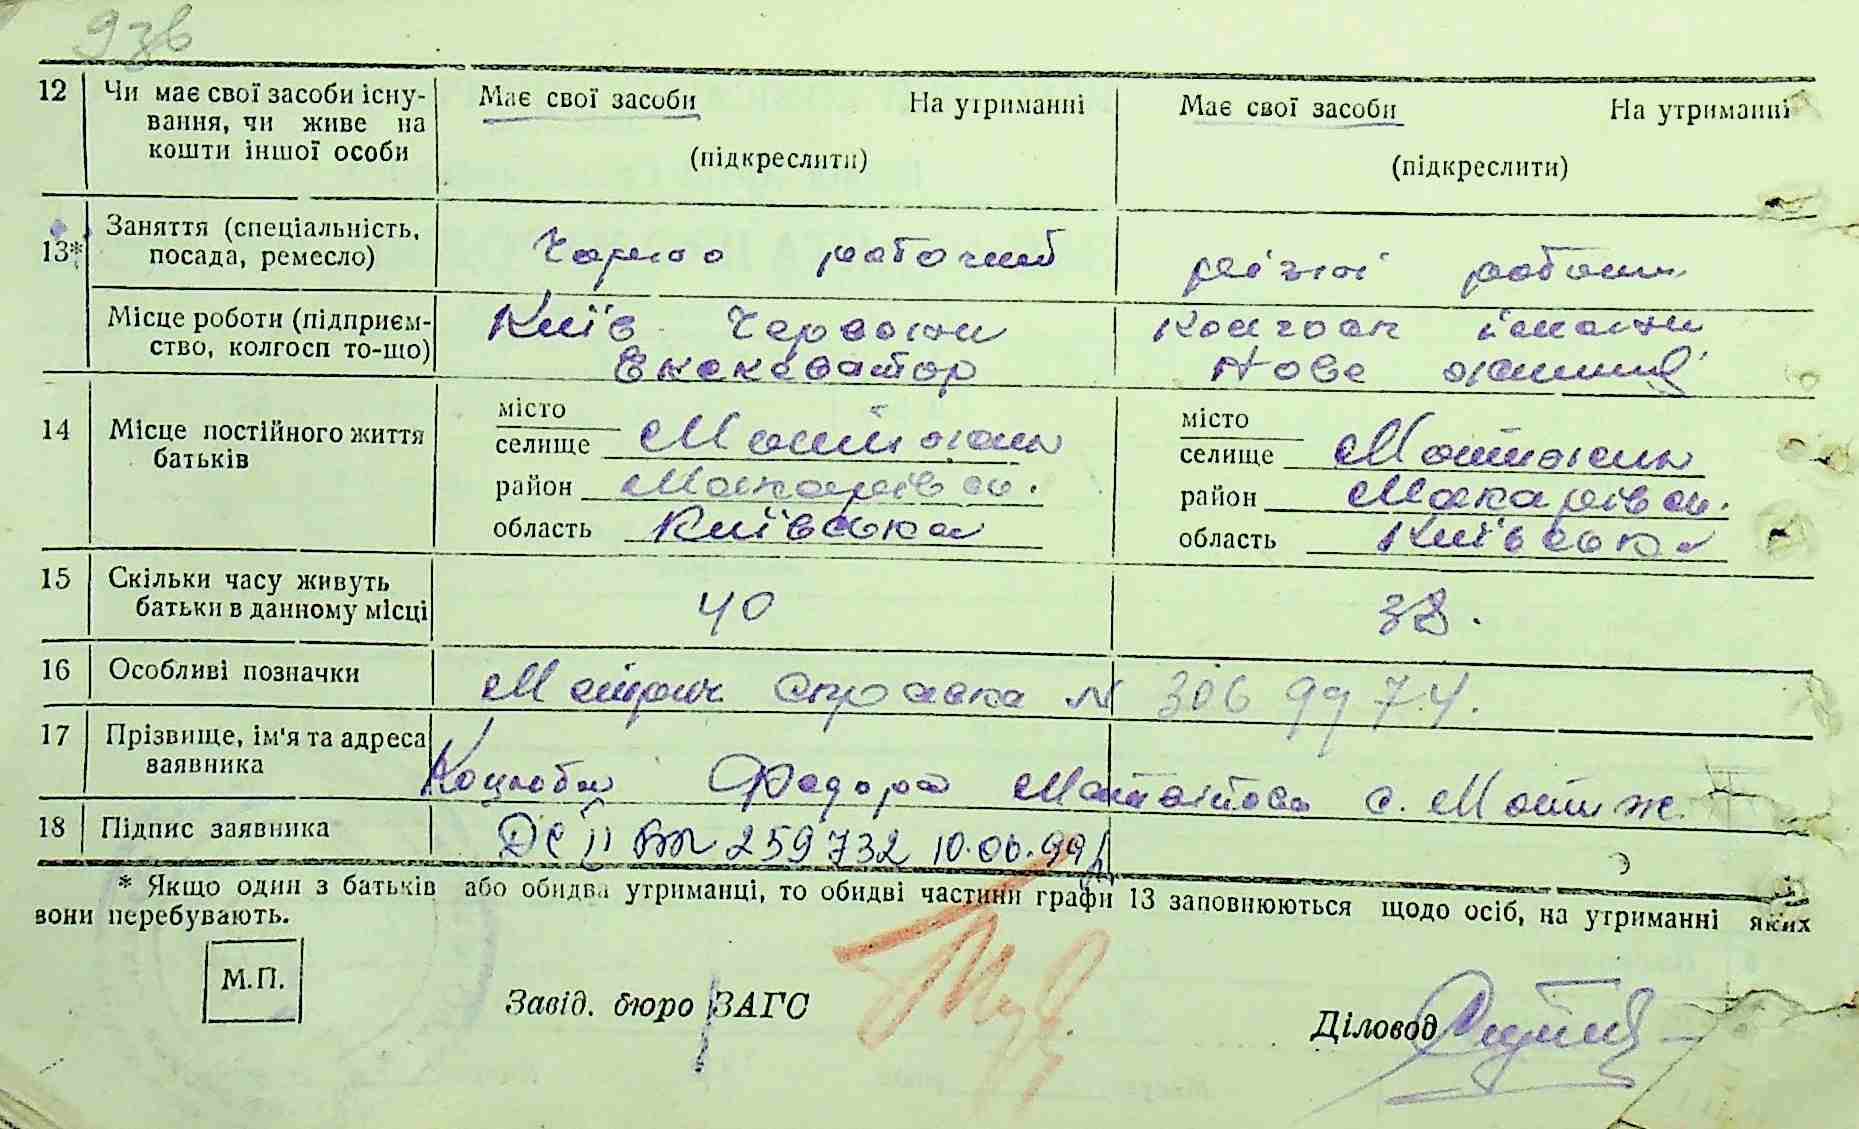 93б
12 Чи має свої засоби існу-
вання, чи живе на
кошти іншої особи
Має свої засоби На утриманні
(підкреслити)
Має свої засоби На утриманні
(підкреслити)
13* Заняття (спеціальність,
посада, ремесло)
Чорно рабочий
різні роботи
Місце роботи (підприєм-
ство, колгосп то-що)
Київ Червоний
Екскаватор
Колгосп імені
Нове життя
14 Місце постійного життя
батьків
місто
селище Мотижин
район Макарівсь.
область Київська
місто
селище Мотижин
район Макарівсь.
область Київська
15 Скільки часу живуть
батьки в данному місці
40
38.
16 Особливі позначки
Метрич справка N 3069974.
17 Прізвище, ім'я та адреса
заявника
Коцюба Федора с. Мотиж.
18 Підпис заявника
259732 10.06.99
* Якщо один з батьків або обидва утриманці, то обидві частини графи 13 заповнюються щодо осіб, на утриманні яких
вони перебувають.
М.П.
Завід. бюро ЗАГС
Діловод